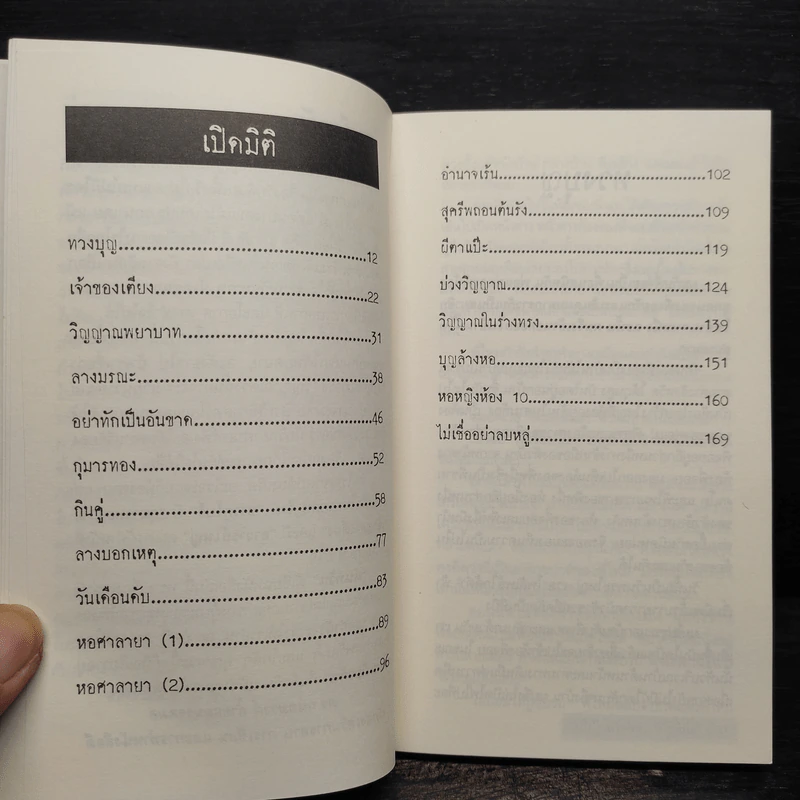 เปิดมิติ
ทวงบุญ...........................................12
เจ้าของเตียง...................................22
วิญญาณพยาบาท..............................31
ลางมรณะ.......................................38
อย่าทักเป็นอันขาด............................46
กุมารทอง.......................................52
กินคู่..............................................58
ลางบอกเหตุ....................................77
วันเดือนดับ.....................................83
หอศาลายา (1)................................89
หอศาลายา (2)................................96
อำนาจเร้น.....................................102
สุครีพถอนต้นรัง..............................109
ผีตาแป๊ะ........................................119
บ่วงวิญญาณ...................................124
วิญญาณในร่างทรง...........................139
บุญล้างหอ.....................................151
หอหญิงห้อง 10...............................160
ไม่เชื่ออย่าลบหลู่..............................169